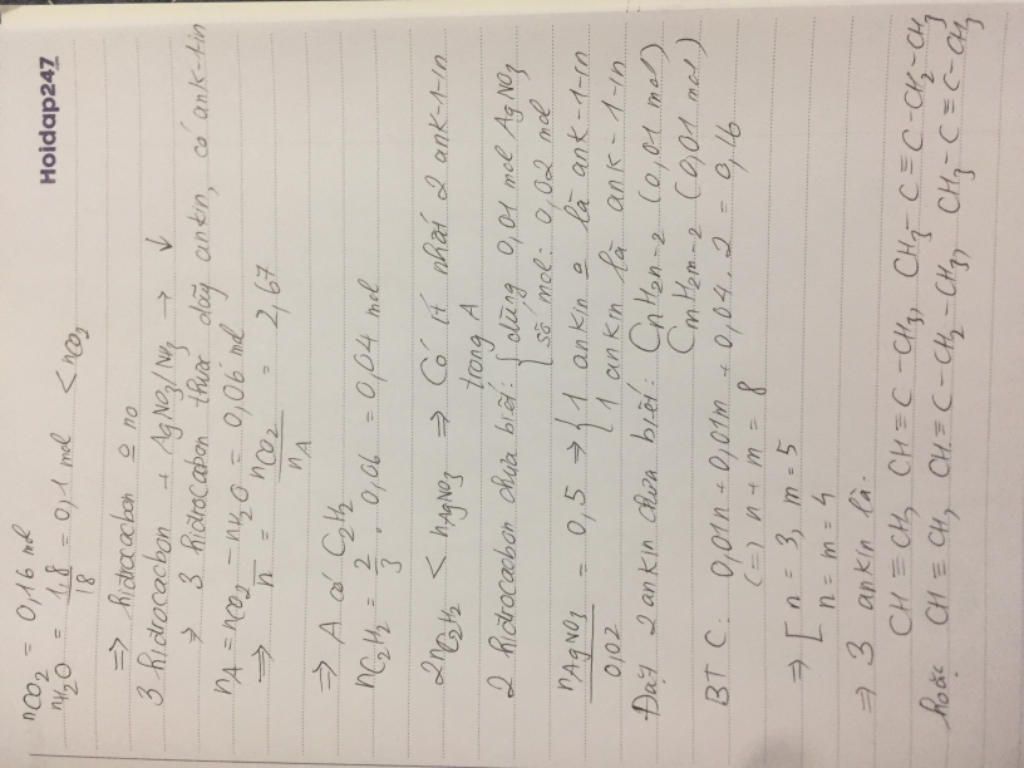 Hoidap247
nCO₂ = 0,16 mol
nH₂O = 1,8/18 = 0,1 mol < nCO₂
⇒ hidrocacbon o no
3 hidrocacbon + AgNO₃/NH₃ → ↓
⇒ 3 hidrocacbon thuộc dãy ankin, có ank-1-in
nA = nCO₂ - nH₂O = 0,06 mol
⇒ n̄ = nCO₂/nA = 2,67
⇒ A có C₂H₂
nC₂H₂ = 2/3 . 0,06 = 0,04 mol
2nC₂H₂ < nAgNO₃ ⇒ Có ít nhất 2 ank-1-in
trong A
2 hidrocacbon chưa biết: { dùng 0,01 mol AgNO₃
{ số mol: 0,02 mol
nAgNO₃/0,02 = 0,5 → { 1 ankin o là ank-1-in
{ 1 ankin là ank-1-in
Đặt 2 ankin chưa biết: CnH2n-2 (0,01 mol)
CmH2m-2 (0,01 mol)
BT C: 0,01n + 0,01m + 0,04.2 = 0,16
(=) n + m = 8
⇒ [ n = 3, m = 5
n = m = 4
⇒ 3 ankin là:
CH≡CH, CH≡C-CH₃, CH₃-C≡C-CH₂-CH₃
hoặc CH≡CH, CH≡C-CH₂-CH₃, CH₃-C≡C-CH₃